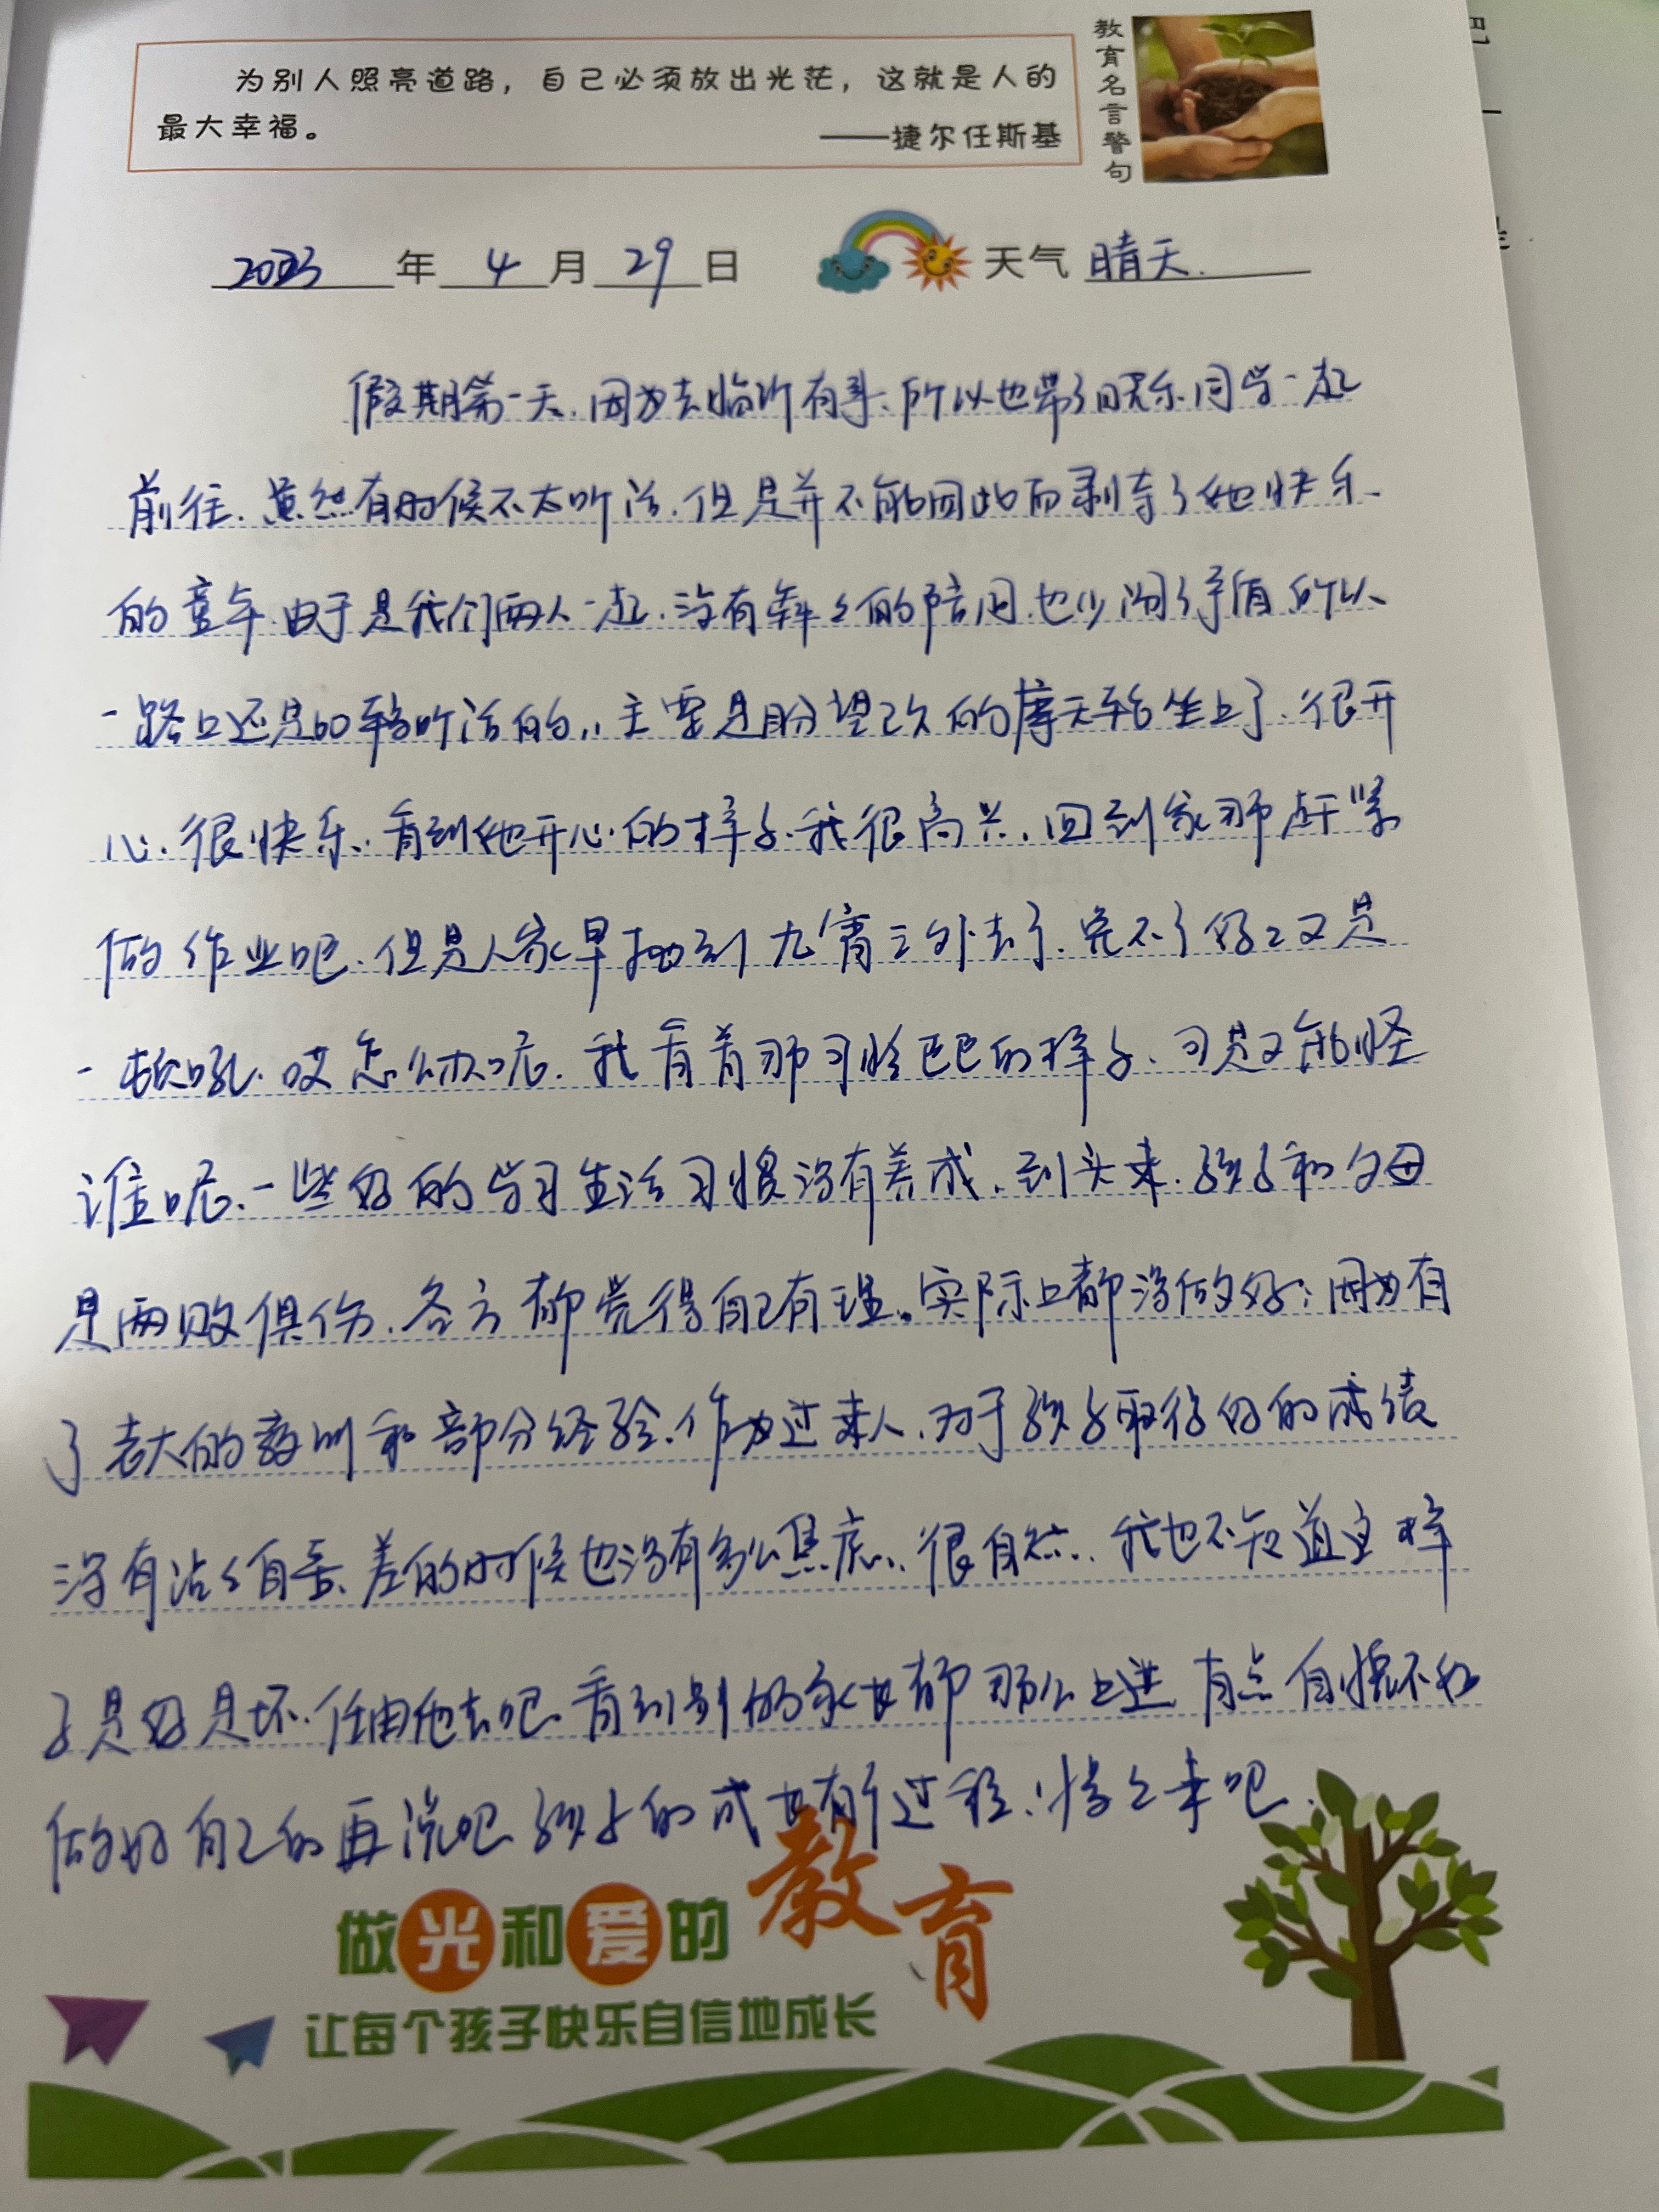 为别人照亮道路，自己必须放出光茫，这就是人的
最大幸福。
——捷尔任斯基
教育名言警句
2023年4月29日 天气 晴天.
假期第一天.因为去临沂有事.所以也带了晓乐同学一起
前往.虽然有时候不太听话.但是并不能因此而剥夺了她快乐
的童年.由于是我们两人一起.没有犇犇的陪同.也少闹了矛盾所以
一路口还是比较听话的,主要是盼望已久的摩天轮坐上了.很开
心.很快乐.看到她开心的样子.我很高兴.回到家那赶紧
做作业吧.但是人家早抛到九霄云外去了.免不了好好又是
一顿吼.哎怎么办呢.我看着那可怜巴巴的样子.可是又能怪
谁呢.一些好的学习生活习惯没有养成.到头来.孩子和父母
是两败俱伤.各方都觉得自己有理。实际上都没做好;因为有
了老大的教训和部分经验.作为过来人.对于孩子取得好的成绩
没有沾沾自喜.差的时候也没有多么焦虑.很自然.我也不知道这样
子是好是坏.任由他去吧.看到别的家长都那么上进 有点自愧不如
做好自己的再说吧 孩子的成长有个过程.慢慢来吧.
做光和爱的教育
让每个孩子快乐自信地成长